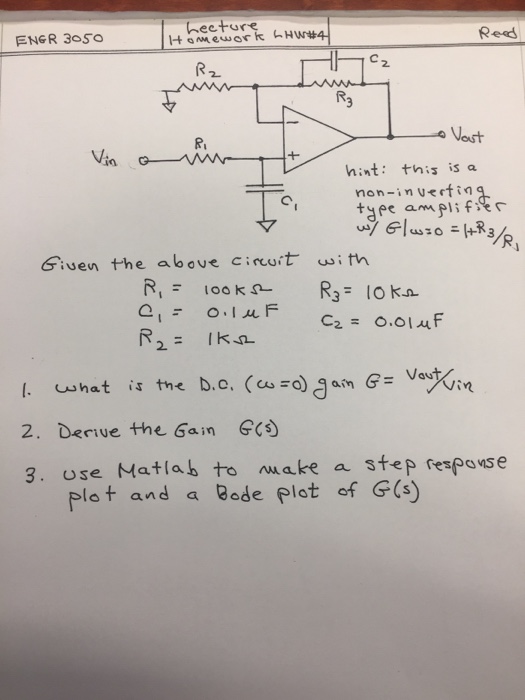 ENGR 3050
Lecture
Homework LHW#4
Reed
C2
R2
R3
Vout
R1
Vin
-
+
C1
hint: this is a
non-inverting
type amplifier
w/ G|ω=0 = 1+R3/R1
Given the above circuit with
R1 = 100KΩ R3 = 10KΩ
C1 = 0.1uF C2 = 0.01uF
R2 = 1KΩ
1. what is the D.C. (ω=0) gain G= Vout/Vin
2. Derive the Gain G(s)
3. use Matlab to make a step response
plot and a Bode plot of G(s)